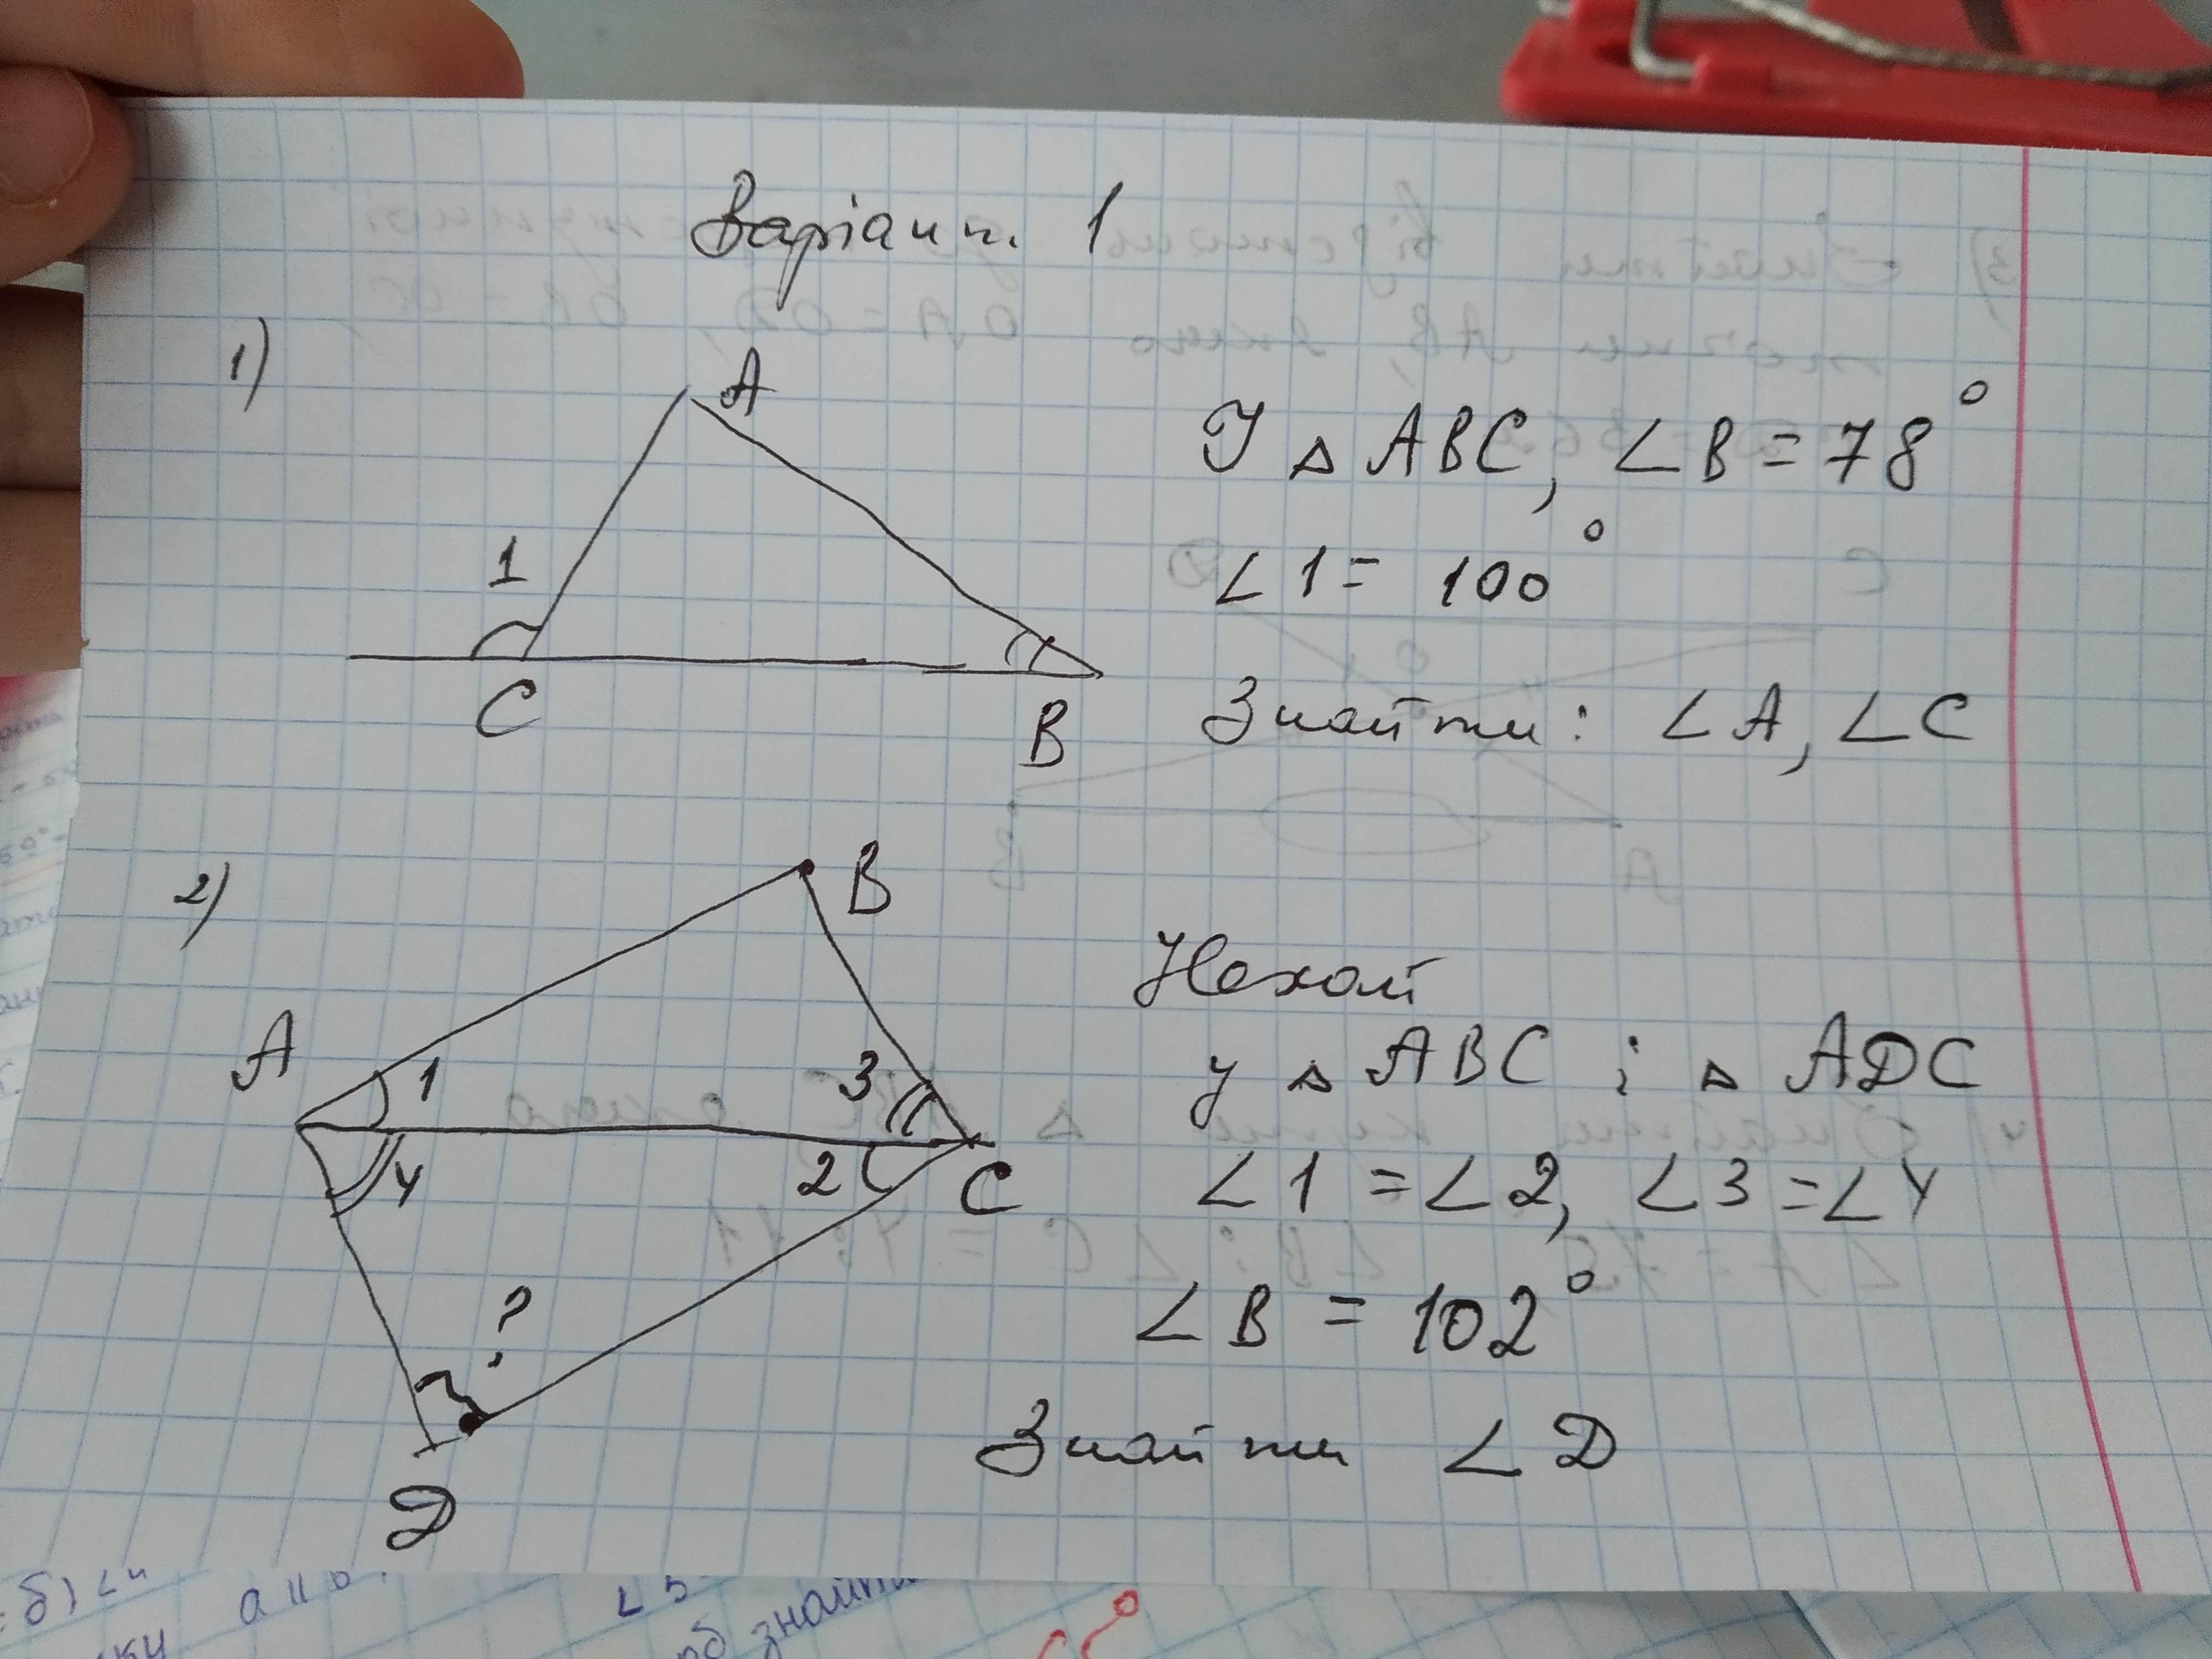 Варіант 1
1)
A
1
C
B
У △ ABC, ∠B = 78°
∠1 = 100°
Знайти: ∠A, ∠C
2)
B
A
1
3
4
2
C
?
D
Нехай
у △ ABC і △ ADC
∠1 = ∠2, ∠3 = ∠4
∠B = 102°
Знайти ∠D
a || b
∠5